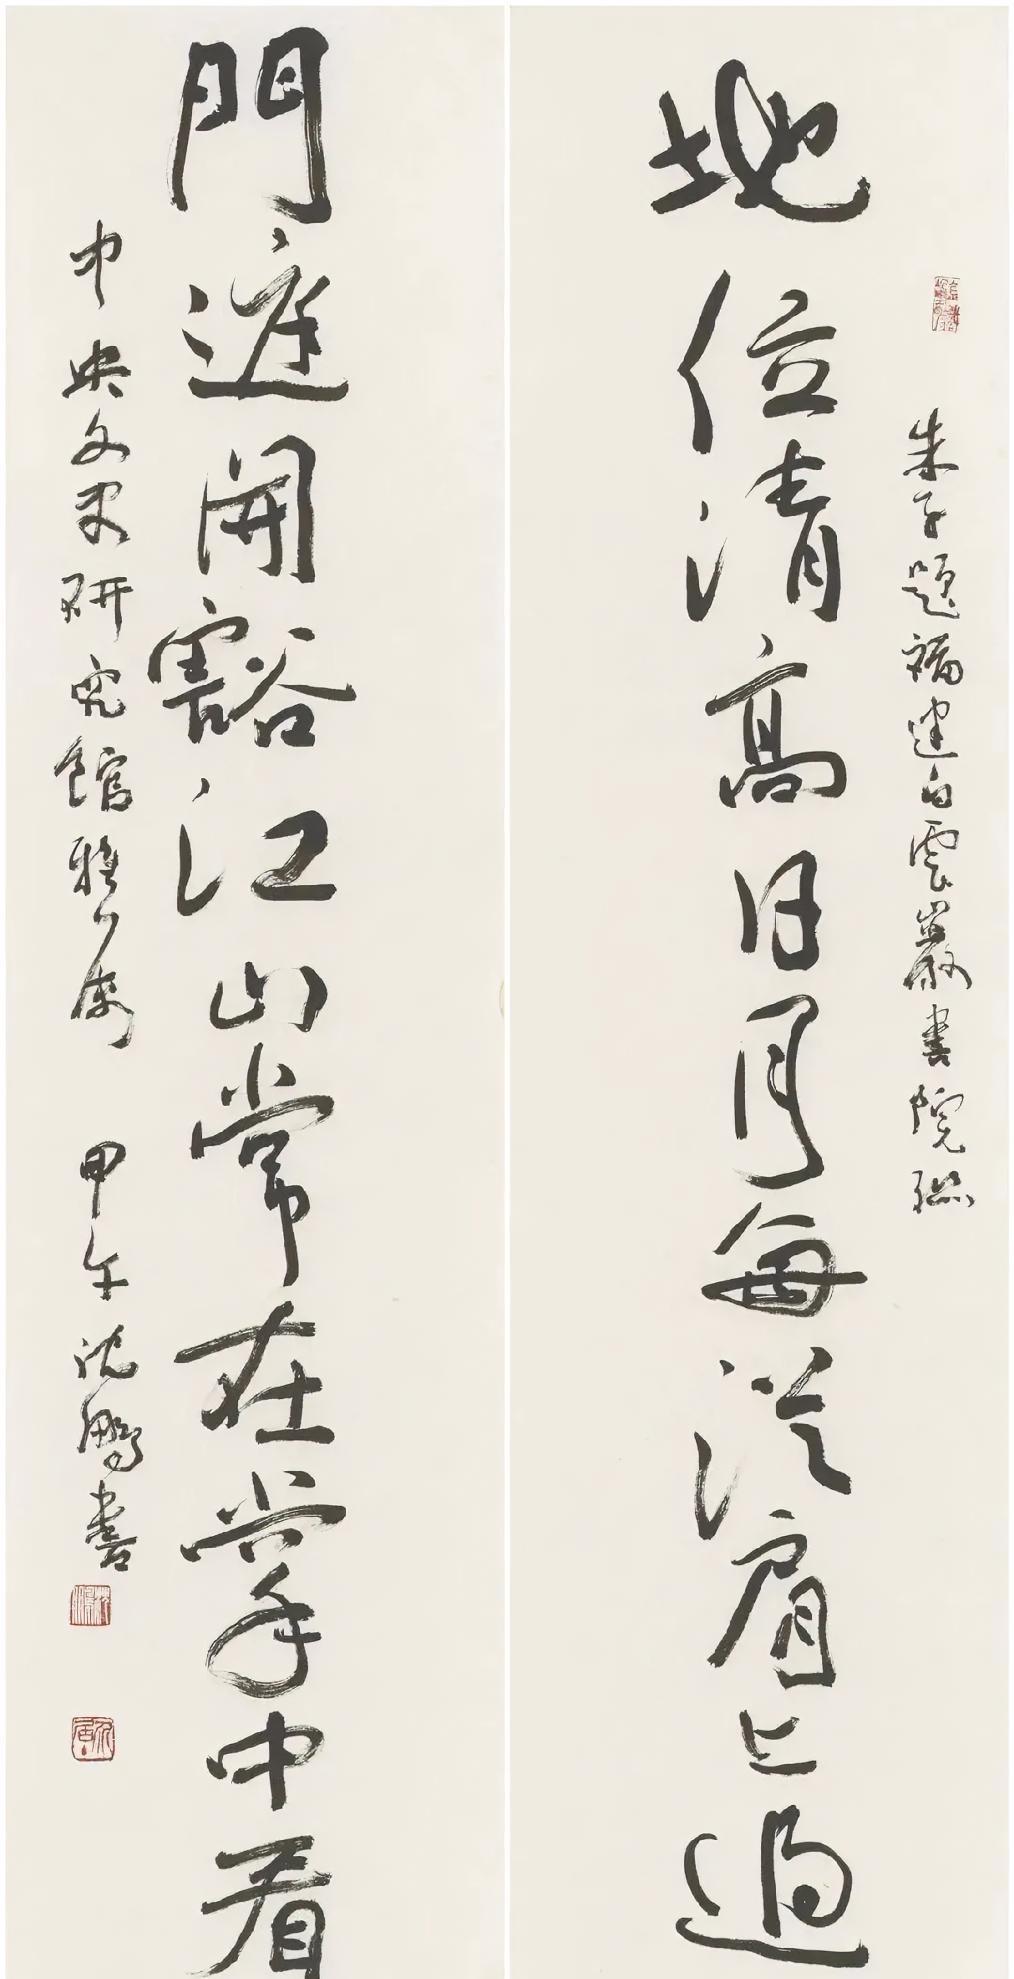 朱子題福建白雲巖書院聯
地位清高日月每從肩上過
門庭開豁江山常在掌中看
中央文史研究館雅屬
甲午沈鵬書